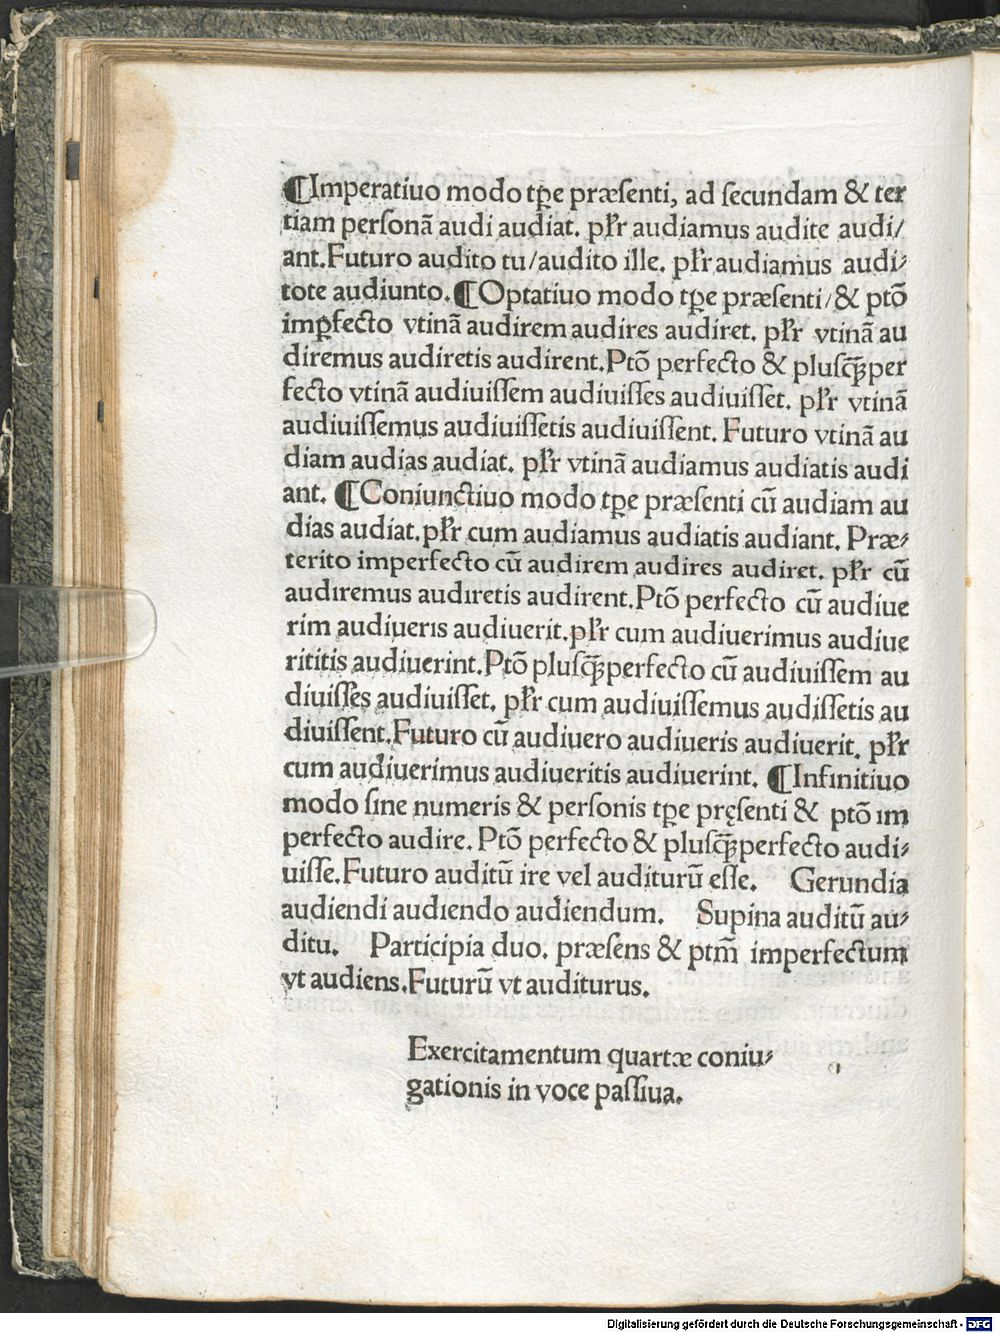 ¶Imperatiuo modo tꝑe præsenti, ad secundam & ter
tiam personā audi audiat. pl̄r audiamus audite audi/
ant.Futuro audito tu/audito ille. pl̄r audiamus audi⸗
tote audiunto.¶Optatiuo modo tꝑe præsenti/& ptō
imꝑfecto vtinā audirem audires audiret. pl̄r vtinā au
diremus audiretis audirent.Ptō perfecto & plusꝗ̄per
fecto vtinā audiuissem audiuisses audiuisset. pl̄r vtinā
audiuissemus audiuissetis audiuissent. Futuro vtinā au
diam audias audiat. pl̄r vtinā audiamus audiatis audi
ant. ¶Coniunctiuo modo tꝑe præsenti cū audiam au
dias audiat.pl̄r cum audiamus audiatis audiant. Præ⸗
terito imperfecto cū audirem audires audiret. pl̄r cū
audiremus audiretis audirent.Ptō perfecto cū audiue
rim audiueris audiuerit.pl̄r cum audiuerimus audiue
rititis audiuerint.Ptō plusꝗ̄perfecto cū audiuissem au
diuisses audiuisset. pl̄r cum audiuissemus audissetis au
diuissent.Futuro cū audiuero audiueris audiuerit. pl̄r
cum audiuerimus audiueritis audiuerint. ¶Infinitiuo
modo sine numeris & personis tꝑe pręsenti & ptō im
perfecto audire. Ptō perfecto & plusꝗ̄perfecto audi⸗
uisse.Futuro auditū ire vel auditurū esse. Gerundia
audiendi audiendo audiendum. Supina auditū au⸗
ditu. Participia duo. præsens & ptm̄ imperfectum
vt audiens.Futurū vt auditurus.
Exercitamentum quartæ coniu⸗
gationis in voce passiua.
Digitalisierung gefördert durch die Deutsche Forschungsgemeinschaft - DFG